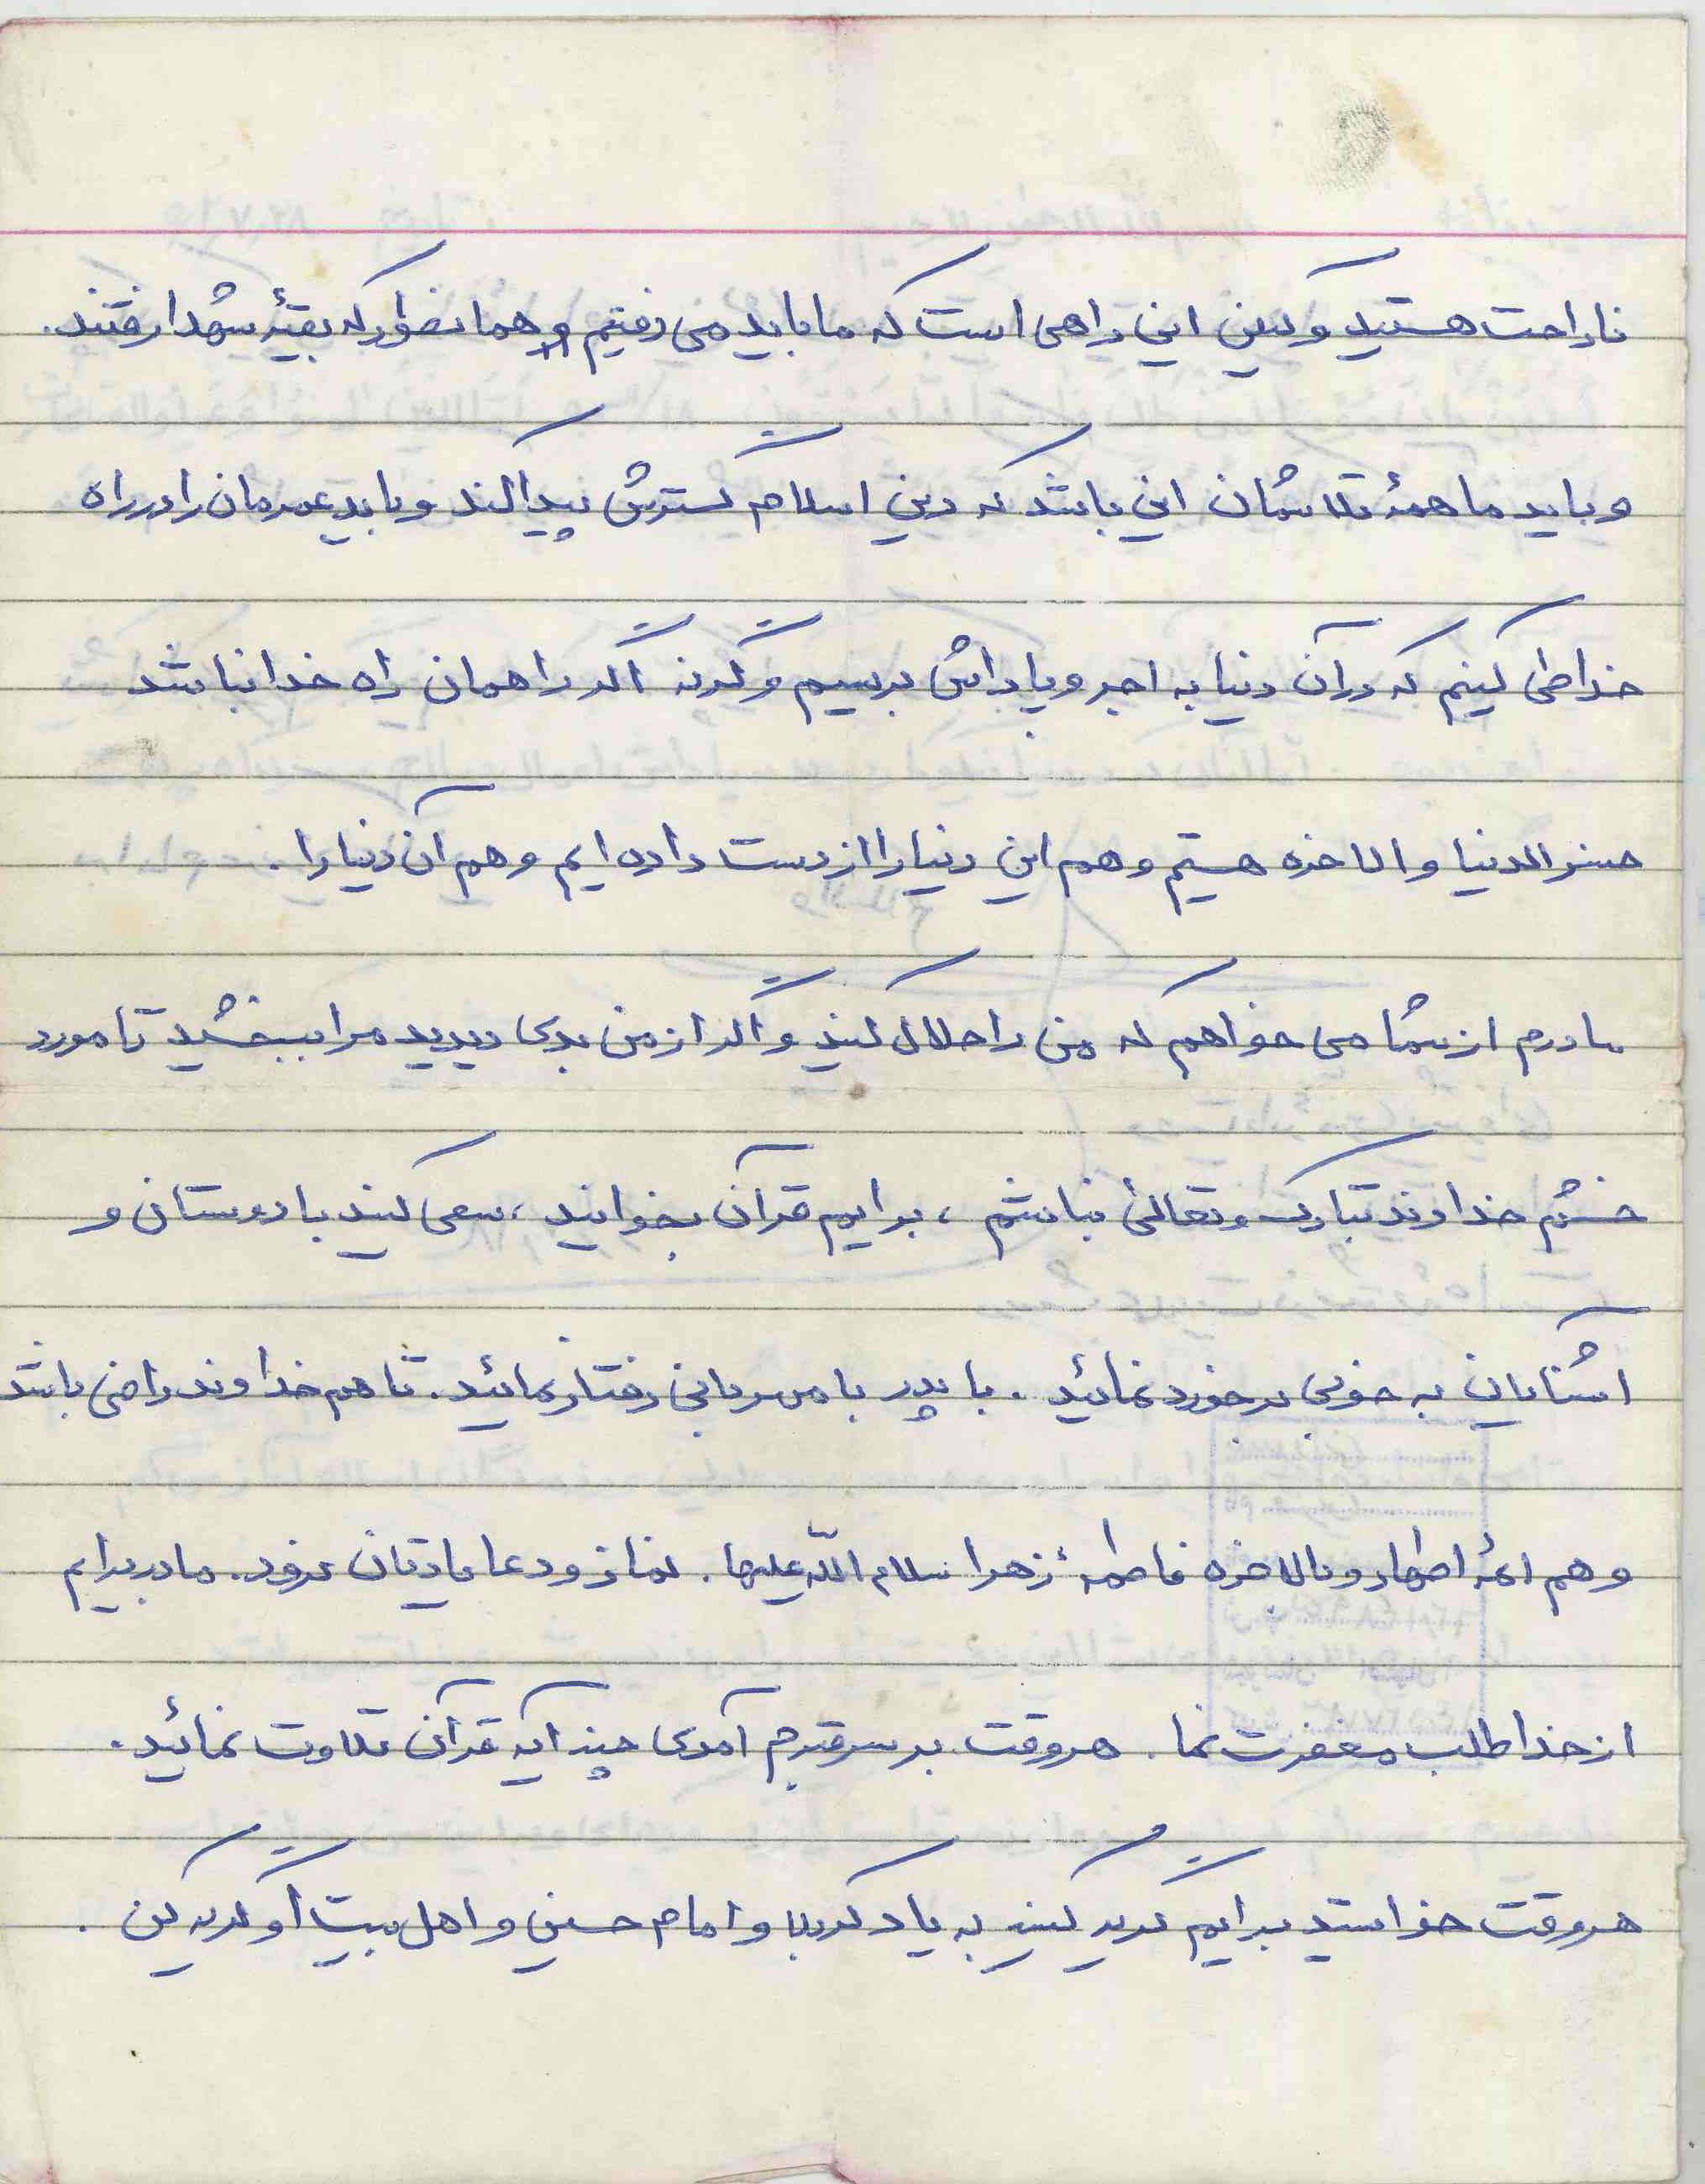 ناراحت هستید ولیکن این راهی است که ما باید می رفتیم و همانطور که بقیهٔ شهدا رفتند.
و باید ما همهٔ تلاشمان این باشد که دین اسلام گسترش پیدا کند و باید عمرمان را در راه
خدا طی کنیم که در آن دنیا به اجر و پاداش برسیم وگرنه اگر راهمان راه خدا نباشد
خسر الدنیا والاخره هستیم و هم این دنیا را از دست داده ایم و هم آن دنیا را.
مادرم از شما می خواهم که من را حلال کنید و اگر از من بدی دیدید مرا ببخشید تا مورد
خشم خداوند تبارک و تعالی نباشم، برایم قرآن بخوانید، سعی کنید با دوستان و
آشنایان به خوبی برخورد نمائید. با پدر با مهربانی رفتار نمائید. تا هم خداوند راضی باشد
و هم ائمهٔ اطهار و بالاخره فاطمهٔ زهرا سلام اللّه علیها. نماز و دعا یادتان نرود. مادر برایم
از خدا طلب مغفرت نما. هر وقت بر سر قبرم آمدی چند آیه قرآن تلاوت نمائید.
هر وقت خواستید برایم گریه کنید به یاد کربلا و امام حسین و اهل بیت او گریه کن.